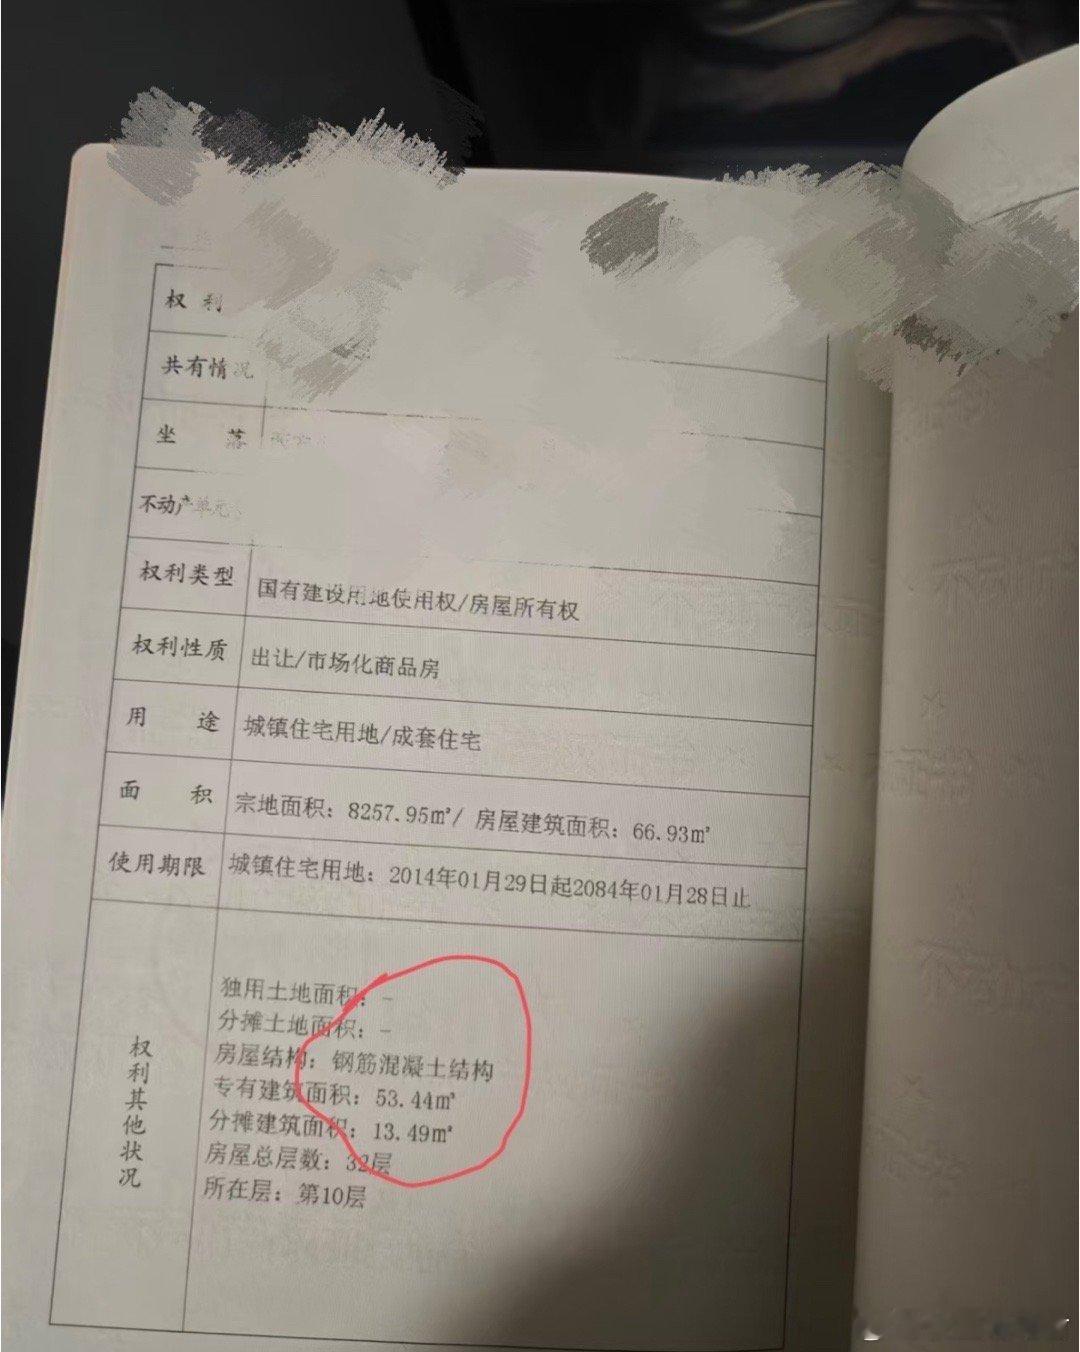 权 利
共有情况
坐 落
不动产单元
权利类型
国有建设用地使用权/房屋所有权
权利性质
出让/市场化商品房
用 途
城镇住宅用地/成套住宅
面 积
宗地面积：8257.95㎡/ 房屋建筑面积：66.93㎡
使用期限
城镇住宅用地：2014年01月29日起2084年01月28日止
权利其他状况
独用土地面积：-
分摊土地面积：-
房屋结构：钢筋混凝土结构
专有建筑面积：53.44㎡
分摊建筑面积：13.49㎡
房屋总层数：32层
所在层：第10层